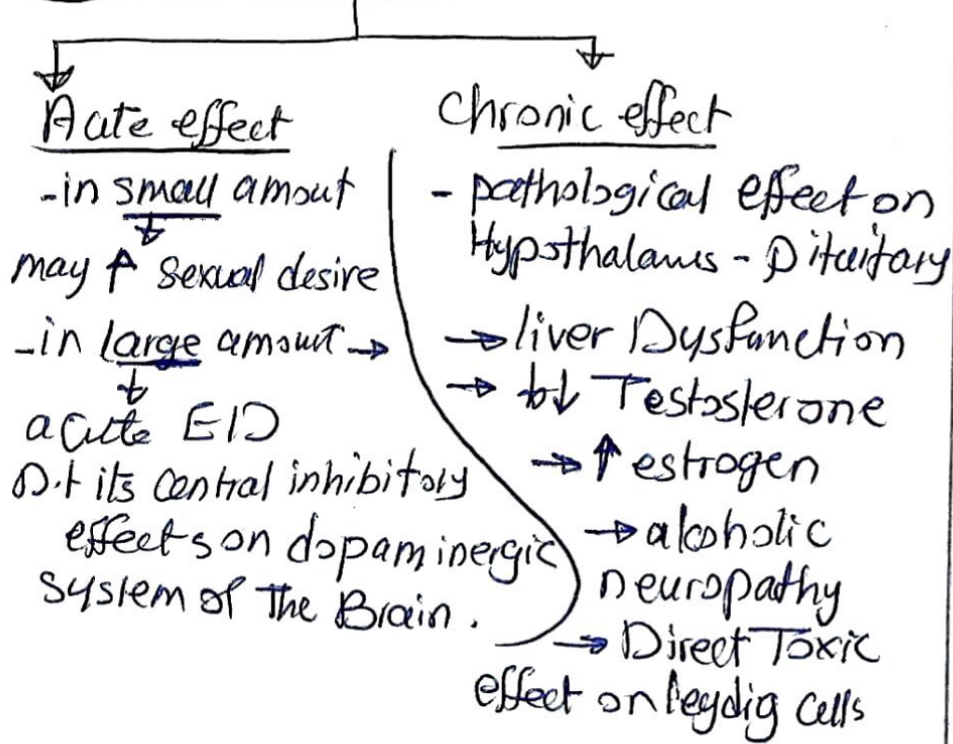 Acute effect
-in small amout
may ↑ sexual desire
-in large amount →
acute E|D
D.t its central inhibitory
effects on dopaminergic
system of the Brain.
Chronic effect
- pathological effect on
Hypothalamus - Pituitary
→ liver Dysfunction
→ ↓ Testosterone
→ ↑ estrogen
→ alcoholic
neuropathy
→ Direct Toxic
effect on leydig cells